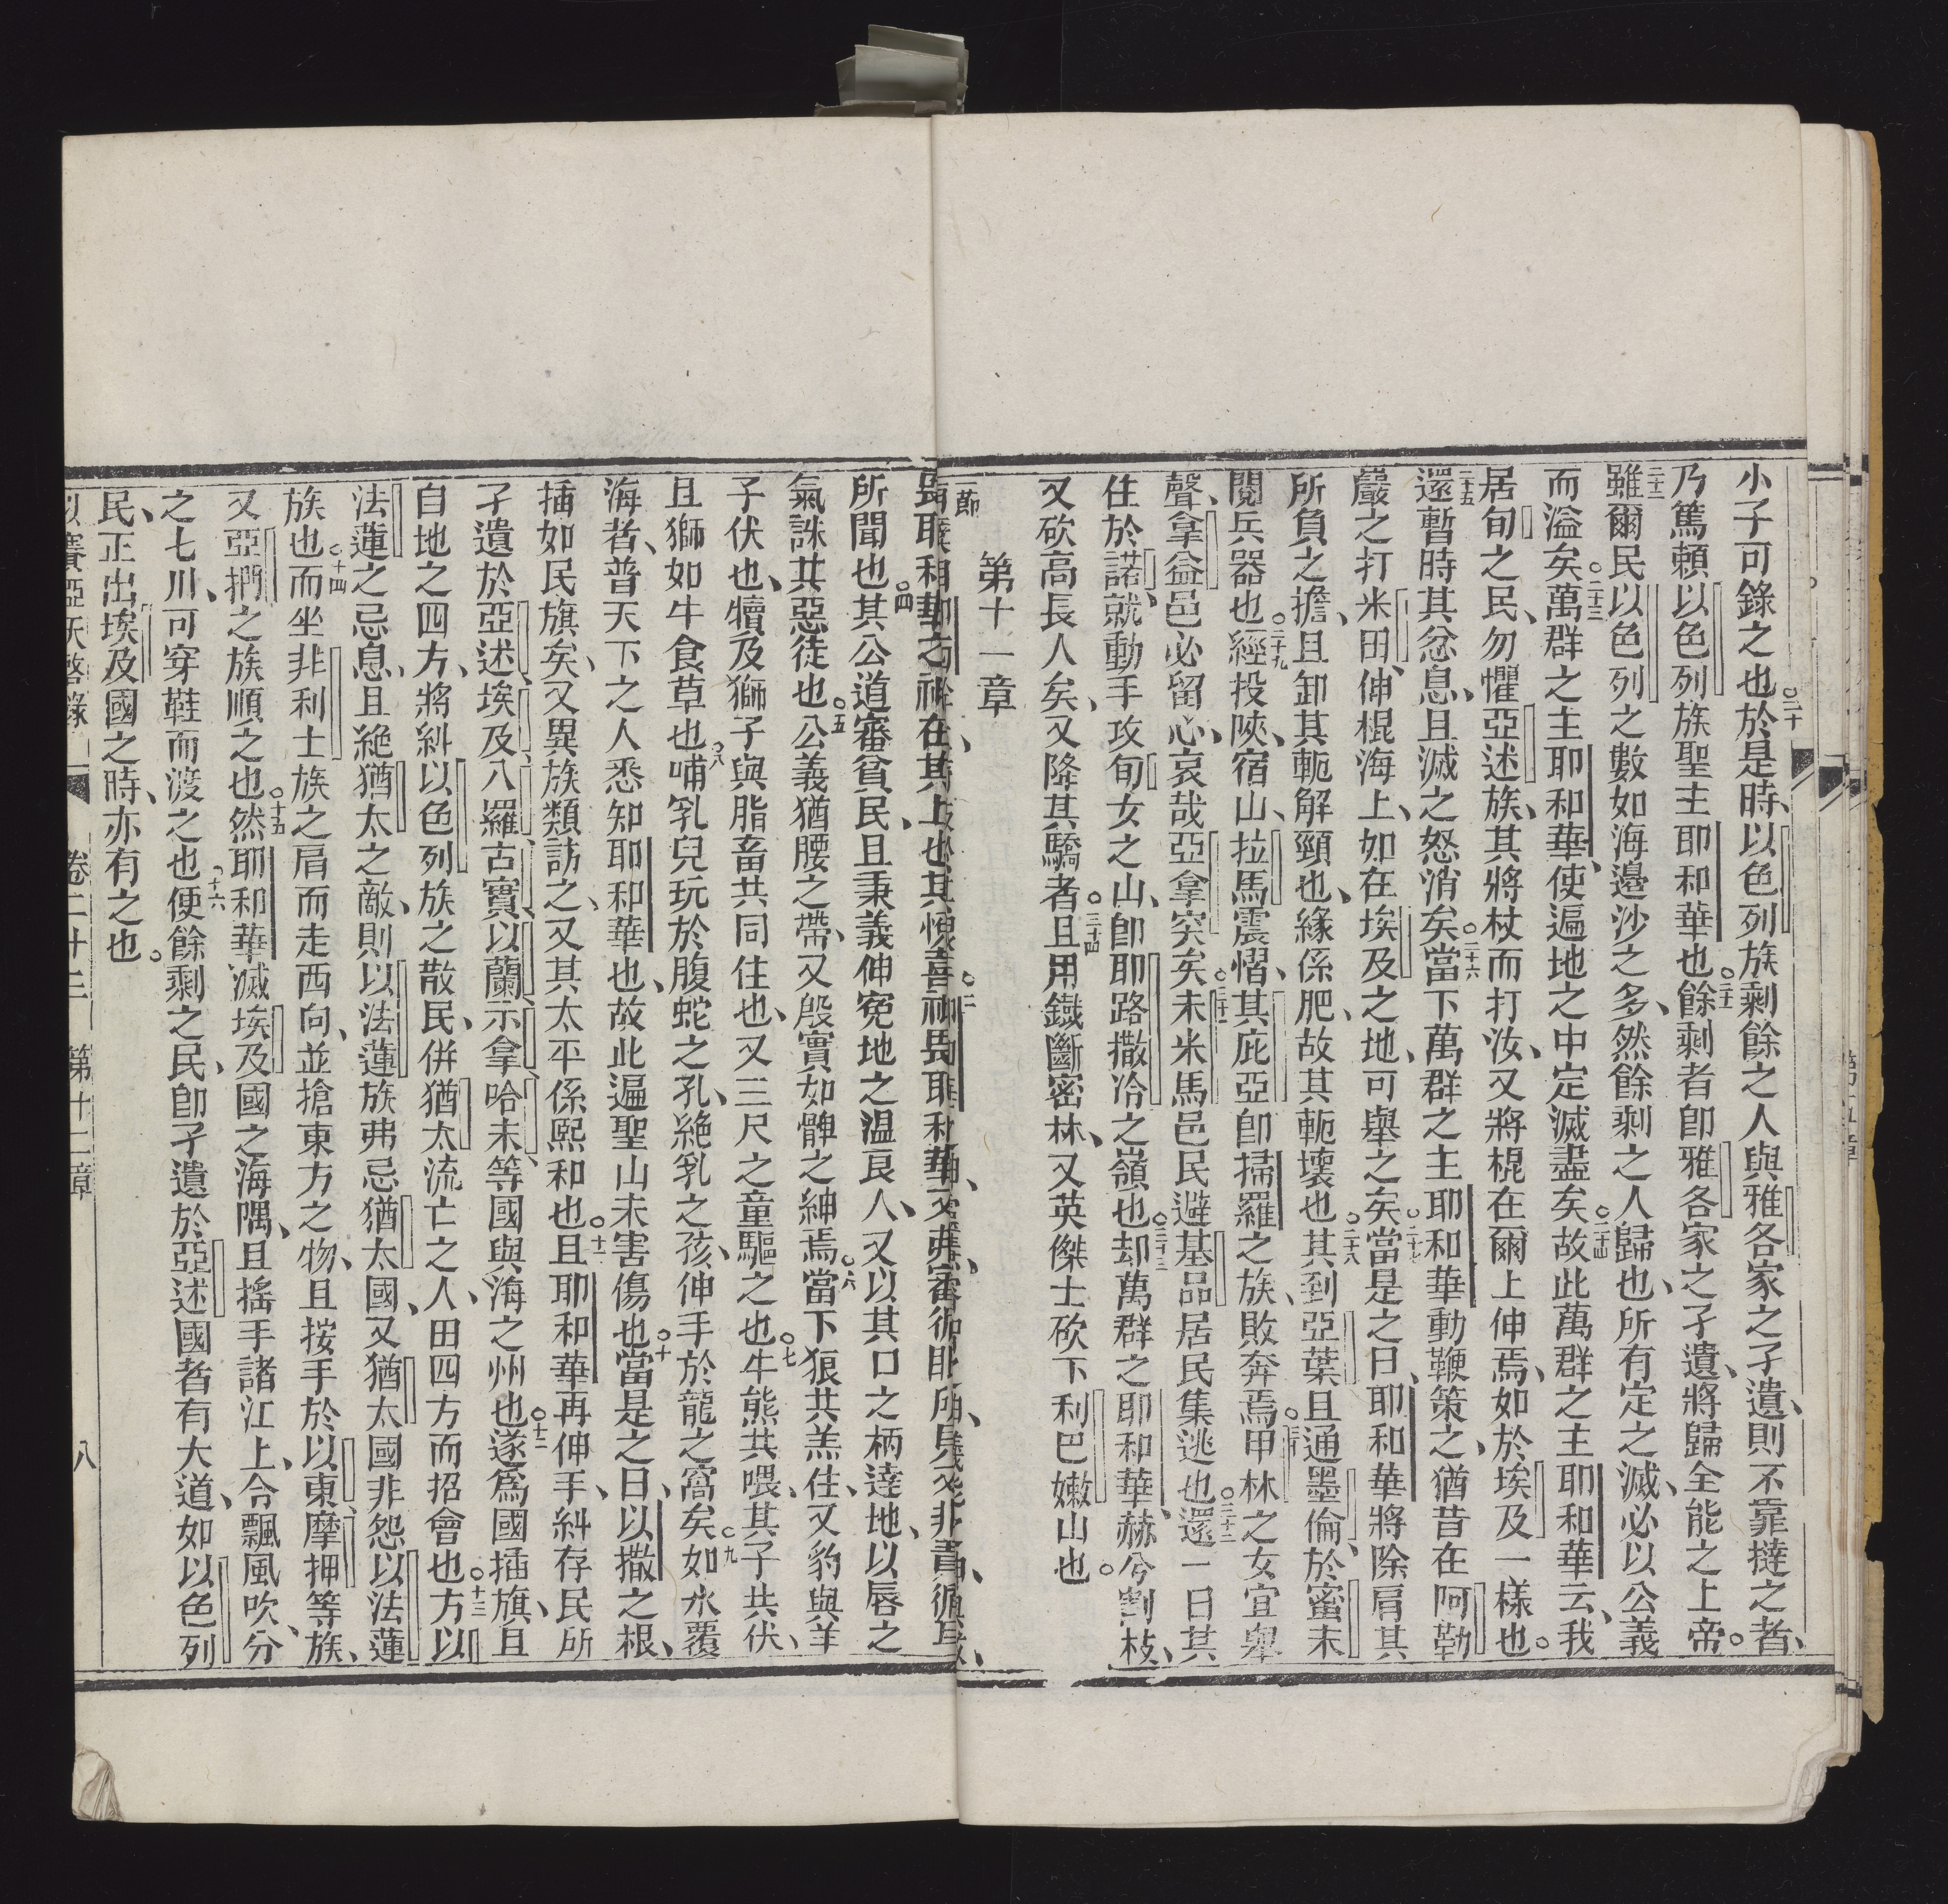 小子可錄之也○二十於是時、以色列族剩餘之人與雅各家之孑遺、則不靠撻之者、
乃篤賴以色列族聖主耶和華也○二十一餘剩者卽雅各家之孑遺、將歸全能之上帝。
二十二雖爾民以色列之數如海邊沙之多、然餘剩之人歸也、所有定之滅、必以公義
而溢矣○二十三萬群之主耶和華、使遍地之中定滅盡矣○二十四故此萬群之主耶和華云、我
居旬之民、勿懼亞述族、其將杖而打汝、又將棍在爾上伸焉、如於埃及一樣也。
二十五還暫時其忿息、且滅之怒消矣○二十六當下萬群之主耶和華動鞭策之、猶昔在阿勒
嚴之打米田、伸棍海上、如在埃及之地、可舉之矣○二十七當是之日、耶和華將除肩其
所負之擔、且卸其軛解頸也、緣係肥、故其軛壞也○二十八其到亞葉、且通墨倫、於蜜末
閱兵器也○二十九經投陜、宿山、拉馬震慴、其庇亞卽掃羅之族、敗奔焉○三十甲林之女宜舉
聲、拿益邑必留心、哀哉亞拿突矣○三十一未米馬邑民避、基品居民集逃也○三十二還一日其
住於諾、就動手攻旬女之山、卽耶路撒冷之嶺也○三十三却萬群之耶和華、赫兮割枝、
又砍高長人矣、又降其驕者○三十四且用鐡斷密林、又英傑士砍下利巴嫩山也。
第十一章
所聞也○四其公道審貧民、且秉義伸寃地之温良人、又以其口之柄達地、以唇之
氣誅其惡徒也○五公義猶腰之帶、又殷實如髀之紳焉○六當下狼共羔住、又豹與羊
子伏也、犢及獅子與脂畜共同住也、又三尺之童驅之也○七牛熊共喂、其子共伏、
且獅如牛食草也○八哺乳兒玩於腹蛇之孔、絶乳之孩、伸手於龍之窩矣○九如水覆
海者、普天下之人悉知耶和華也、故此遍聖山未害傷也○十當是之日、以撒之根、
插如民旗矣、又異族類訪之、又其太平係熙和也○十一且耶和華再伸手、糾存民所
孑遺於亞述、埃及、八羅、古實、以蘭、示拿、哈末、等國與海之州也○十二遂爲國插旗、且
自地之四方、將糾以色列族之散民、併猶太流亡之人、由四方而招會也○十三方以
法蓮之忌息、且絶猶太之敵、則以法蓮族弗忌猶太國、又猶太國非怨以法蓮
族也○十四而坐非利士族之肩而走西向、並搶東方之物、且按手於以東、摩押等族、
又亞捫之族順之也○十五然耶和華滅埃及國之海隅、且搖手諸江上、令飄風吹、分
之七川、可穿鞋而渡之也○十六便餘剩之民、卽孑遺於亞述國者有大道、如以色列
民、正出埃及國之時、亦有之也。
以賽亞天啓錄 卷二十三 第十二章 八